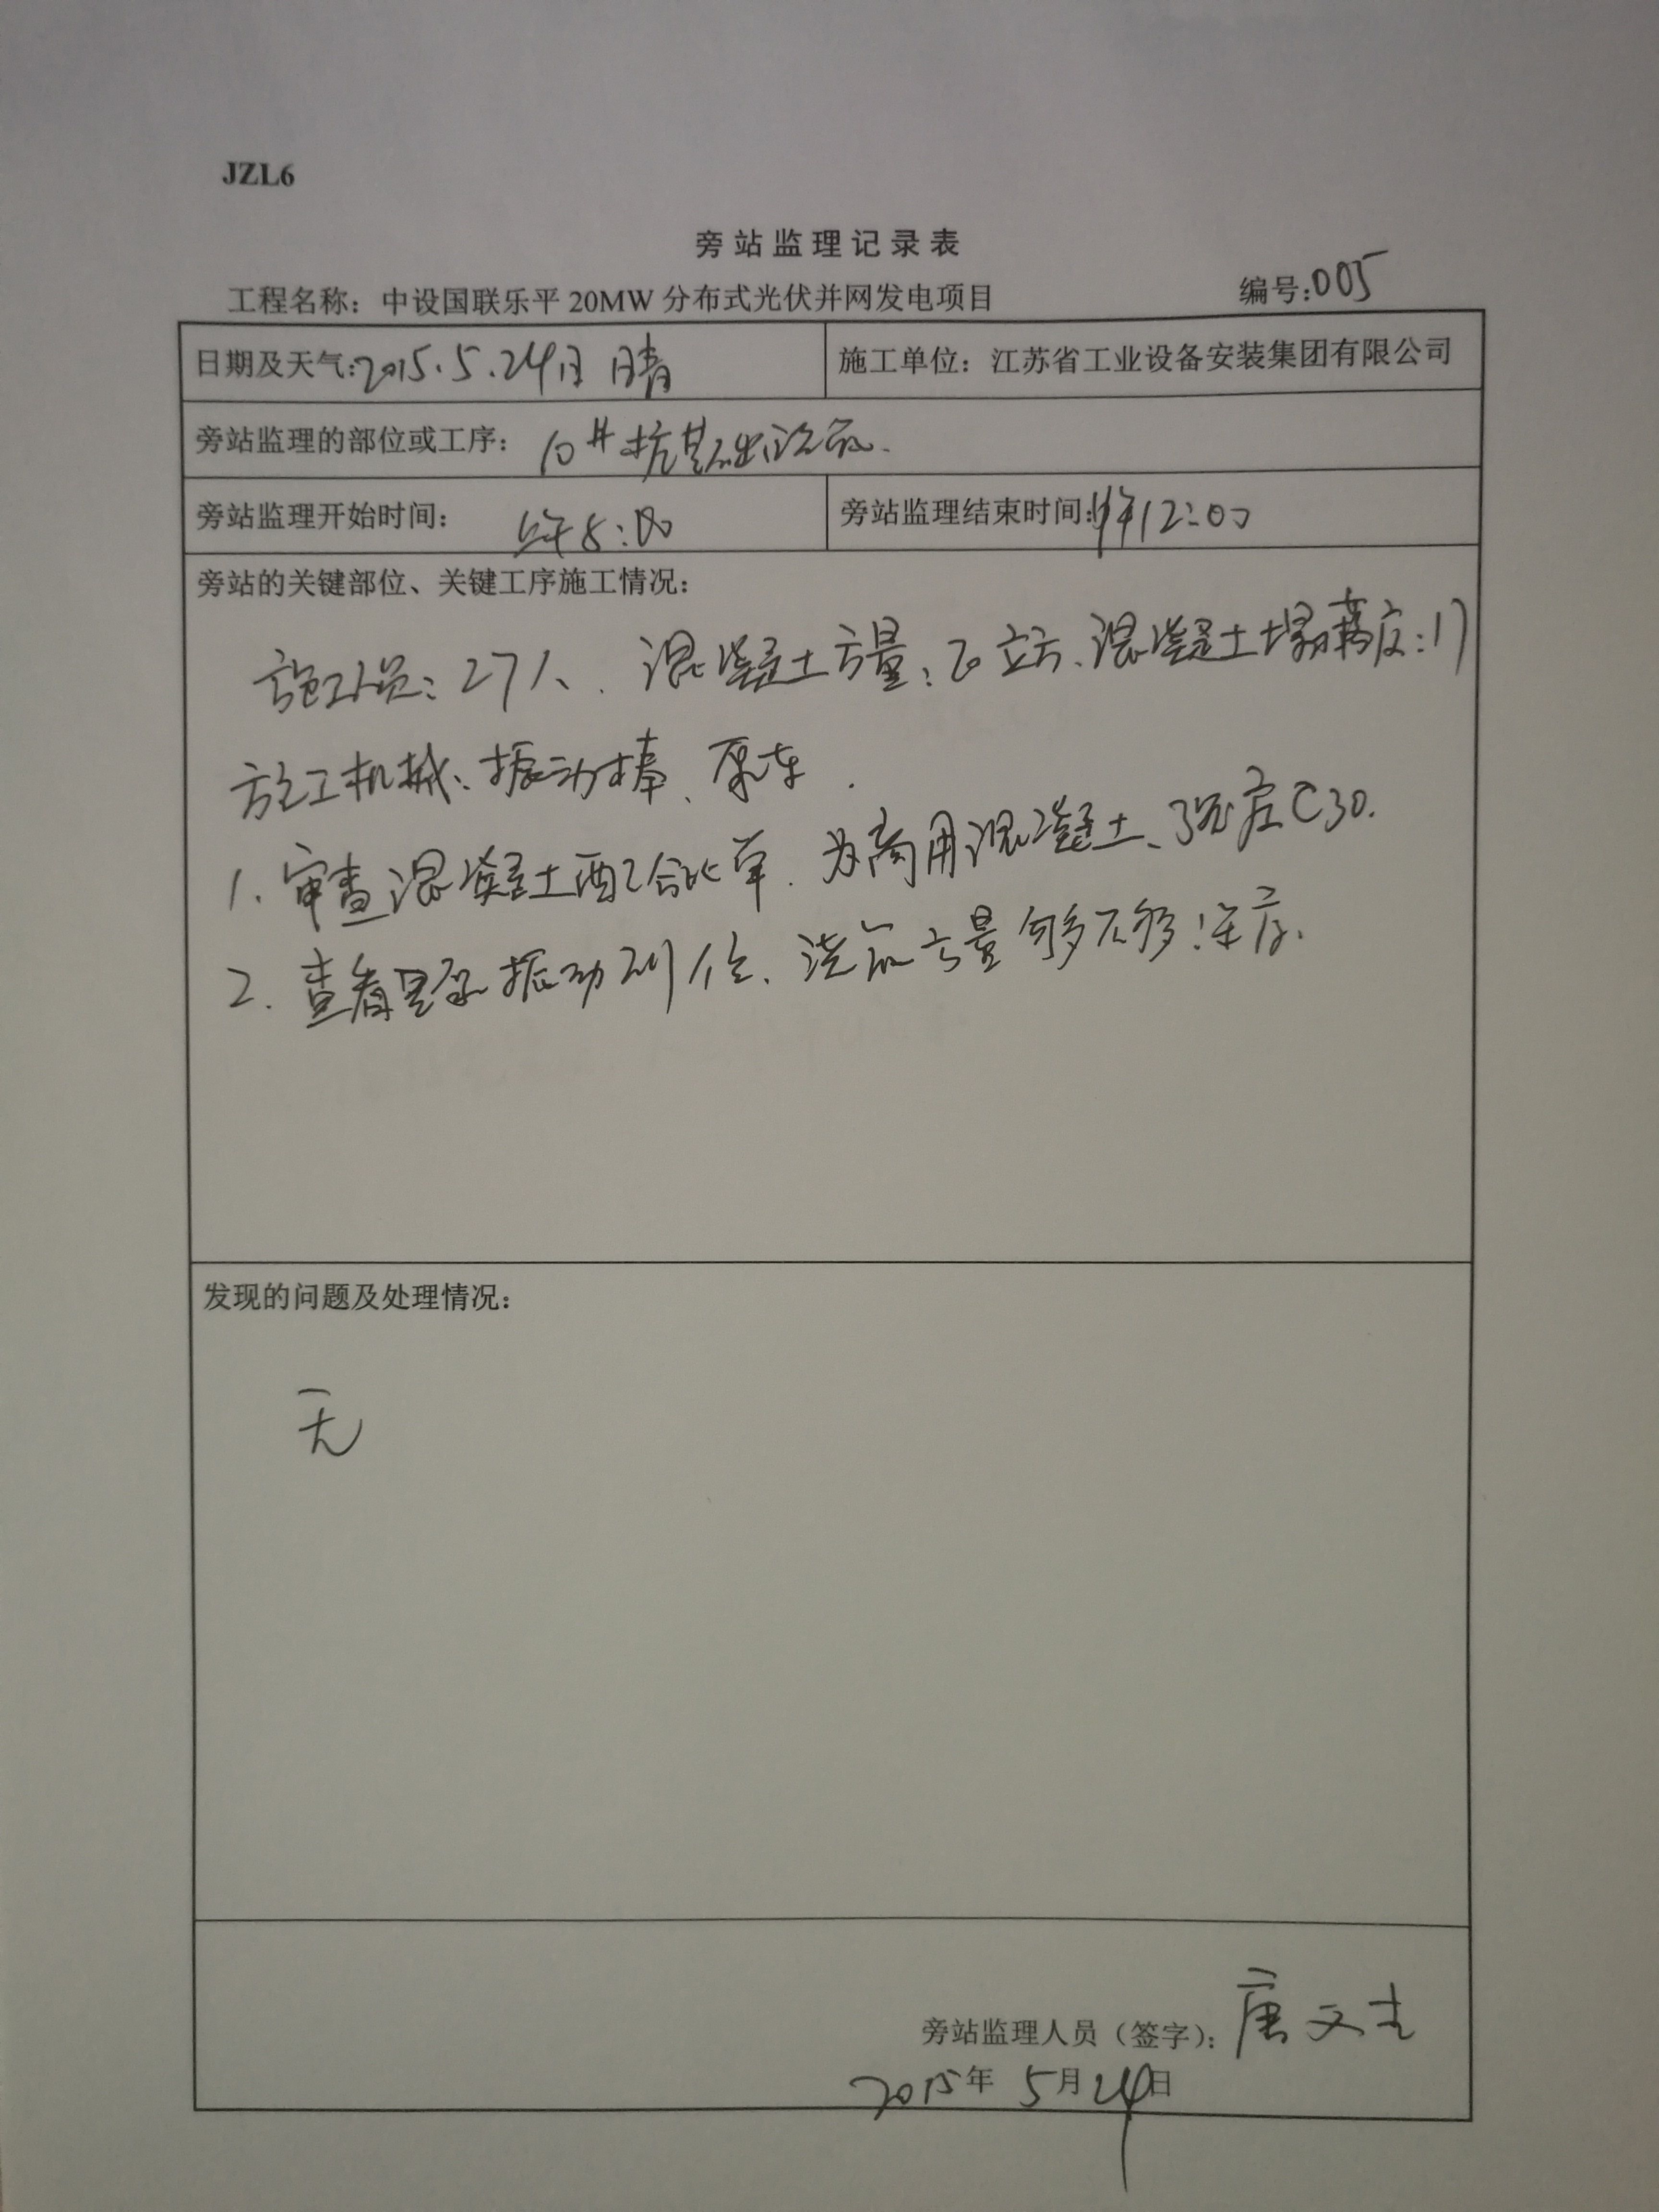 JZL6
旁站监理记录表
工程名称：中设国联乐平 20MW 分布式光伏并网发电项目 编号:005
日期及天气:2015.5.24日 晴 施工单位：江苏省工业设备安装集团有限公司
旁站监理的部位或工序： 10# 基础浇筑.
旁站监理开始时间： 上午8:00 旁站监理结束时间: 12:00
旁站的关键部位、关键工序施工情况：
施工人员: 27人. 混凝土方量: 立方、混凝土塌落度:17
施工机械: 振动棒、泵车.
1. 审查混凝土配合比单. 为商用混凝土、强度C30.
2. 查看是否振动到位、浇筑方量够不够
发现的问题及处理情况：
无
旁站监理人员（签字）：唐文
2015年 5月24日